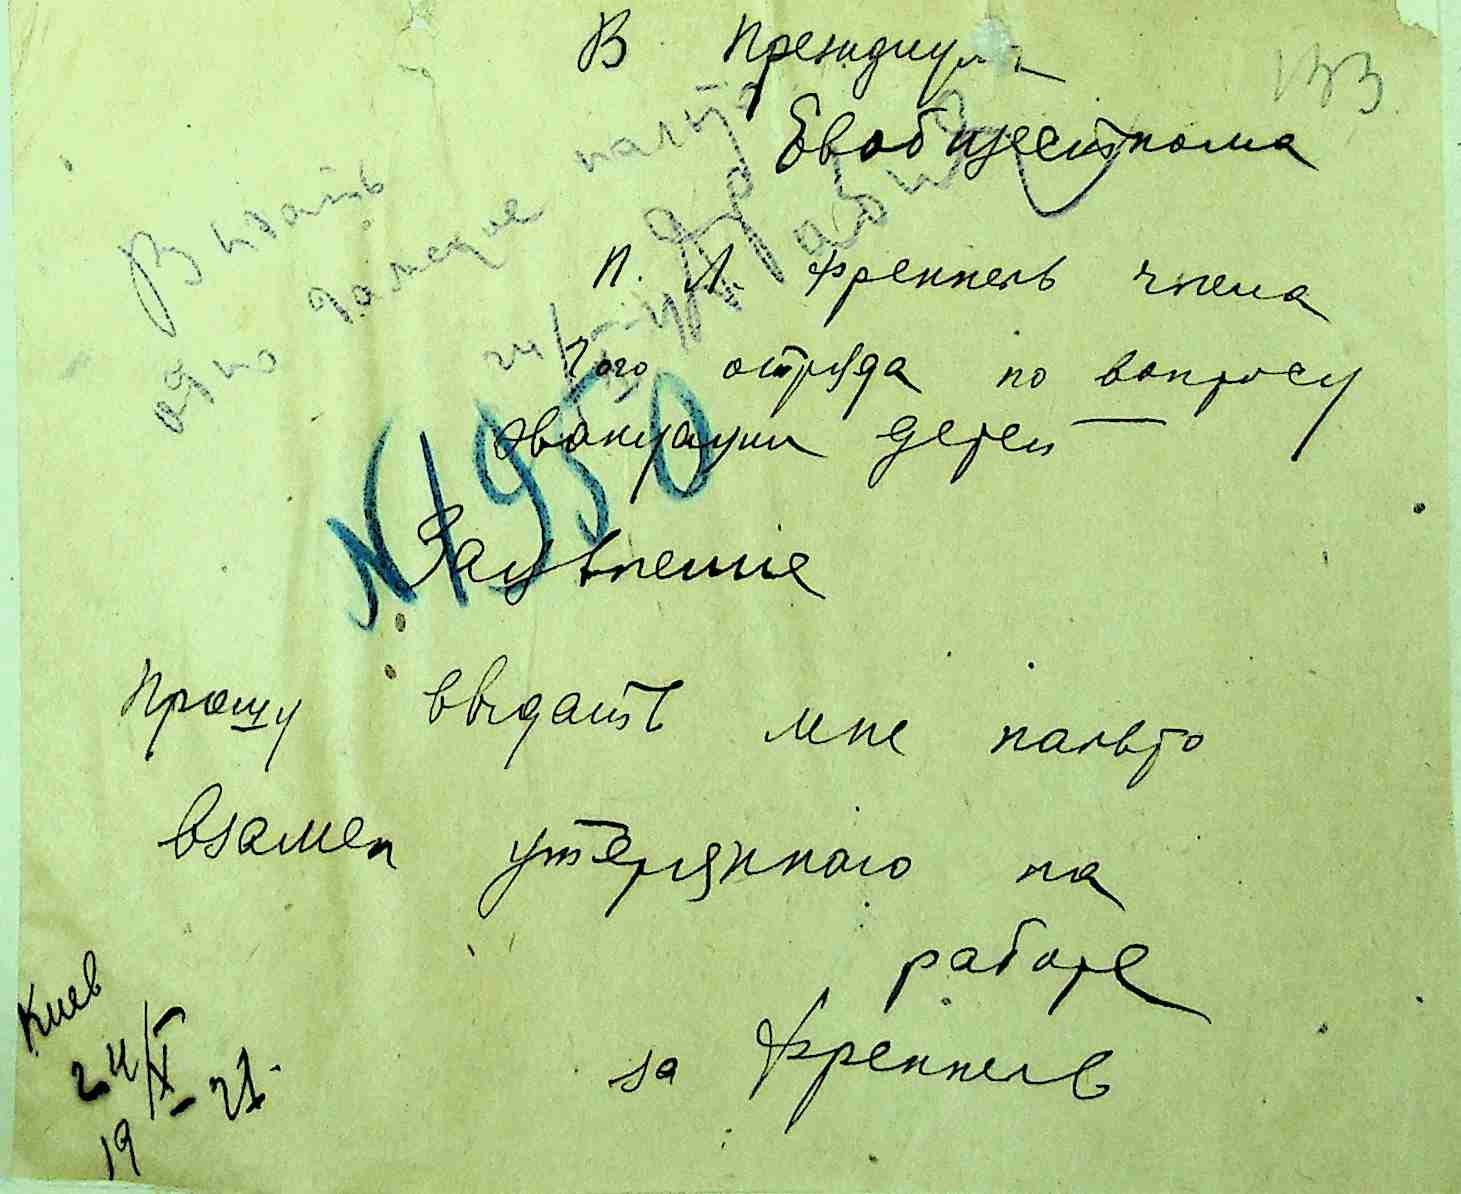 В Президиум
133
Евобщесткома
П. Л. Френкель члена
7ого отряда по вопросу
эвакуации детей
Выдать
одно дамское пальто
24/X
№1950
Заявление
Прошу выдать мне пальто
взамен утерянного на
работе
за Френкель
Киев
24/X - 21.
19